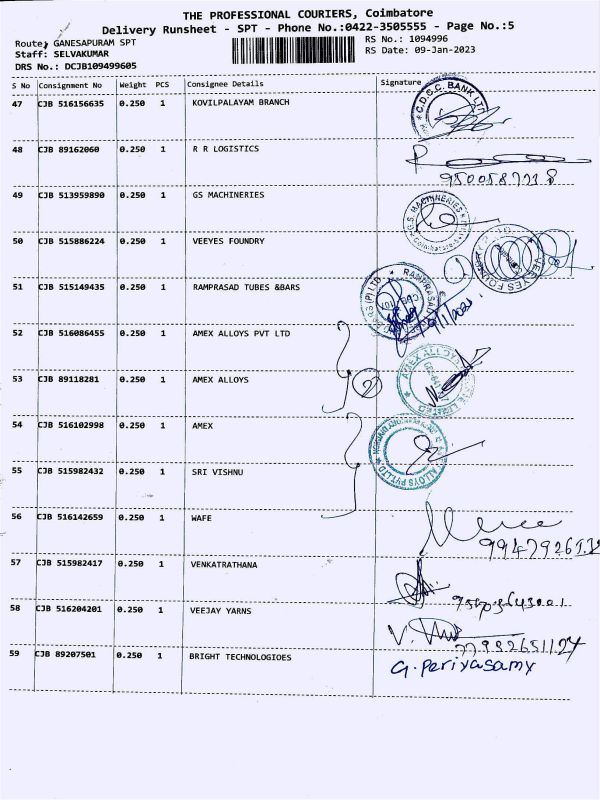 THE PROFESSIONAL COURIERS, Coimbatore
Delivery Runsheet - SPT - Phone No.:0422-3505555 - Page No.:5
Route: GANESAPURAM SPT
RS No.: 1094996
Staff: SELVAKUMAR
RS Date: 09-Jan-2023
DRS No.: DCJB109499605
S No Consignment No Weight PCS Consignee Details Signature
47 CJB 516156635 0.250 1 KOVILPALAYAM BRANCH
C.D.C.C. BANK LTD
48 CJB 89162060 0.250 1 R R LOGISTICS
49 CJB 513959890 0.250 1 GS MACHINERIES
G.S. MACHINERIES
50 CJB 515886224 0.250 1 VEEYES FOUNDRY
51 CJB 515149435 0.250 1 RAMPRASAD TUBES &BARS
RAMPRASAD
52 CJB 516086455 0.250 1 AMEX ALLOYS PVT LTD
53 CJB 89118281 0.250 1 AMEX ALLOYS
2
AMEX ALLOYS
LIMITED
54 CJB 516102998 0.250 1 AMEX
ALLOYS PVT LTD
55 CJB 515982432 0.250 1 SRI VISHNU
56 CJB 516142659 0.250 1 WAFE
57 CJB 515982417 0.250 1 VENKATRATHANA
58 CJB 516204201 0.250 1 VEEJAY YARNS
59 CJB 89207501 0.250 1 BRIGHT TECHNOLOGIOES
G. Periyasamy